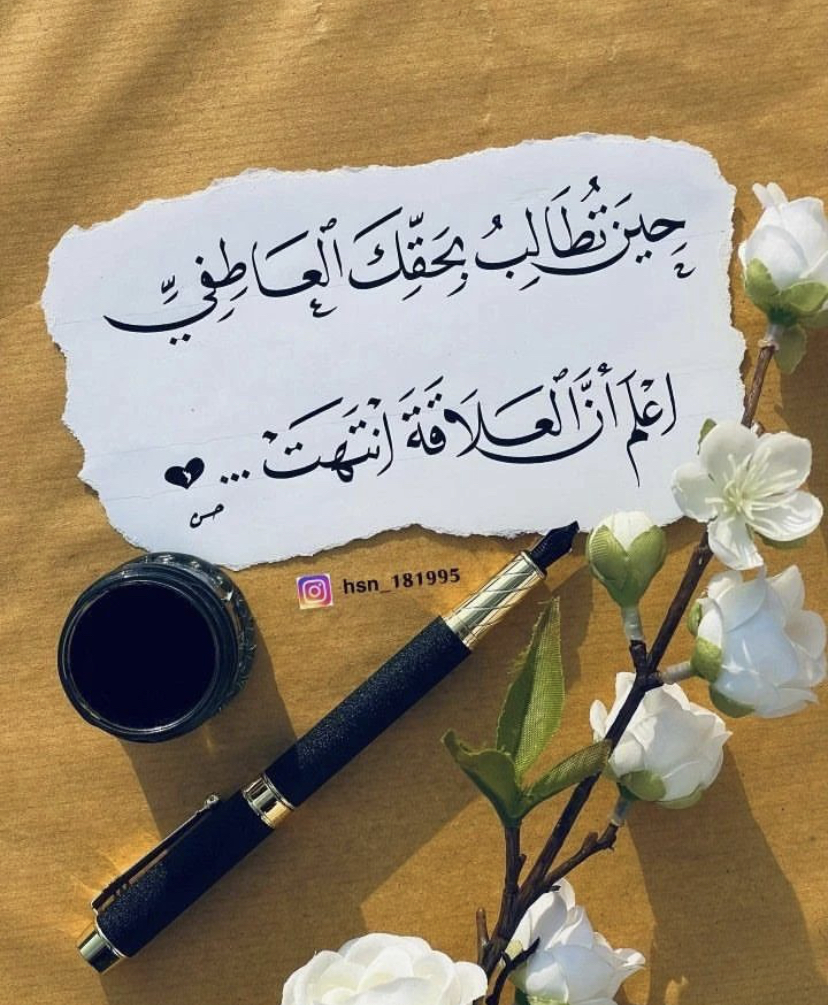 حِينَ تُطَالِبُ بِحَقِّكَ الْعَاطِفِيِّ
اعْلَمْ أَنَّ الْعَلَاقَةَ انْتَهَتْ ...
حسن
hsn_181995